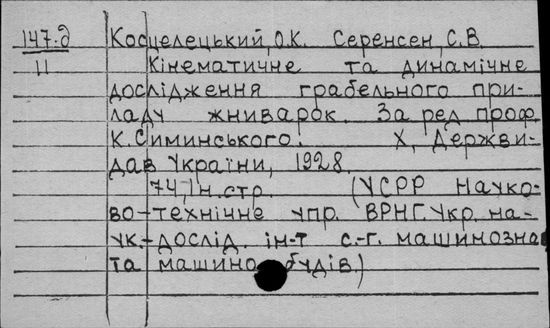 147.д Косцелецький, О.К. Серенсен, С.В.
11 Кінематичне та динамічне
дослідження грабельного при-
ладу жниварок. За ред проф.
К. Симинського. Х, Держви-
дав України, 1928.
74,1н.стр. (УСРР Науко-
во-технічне упр. ВРНГ. Укр. на-
ук.-дослід. ін-т с.-г. машинозна
та машино будів.)